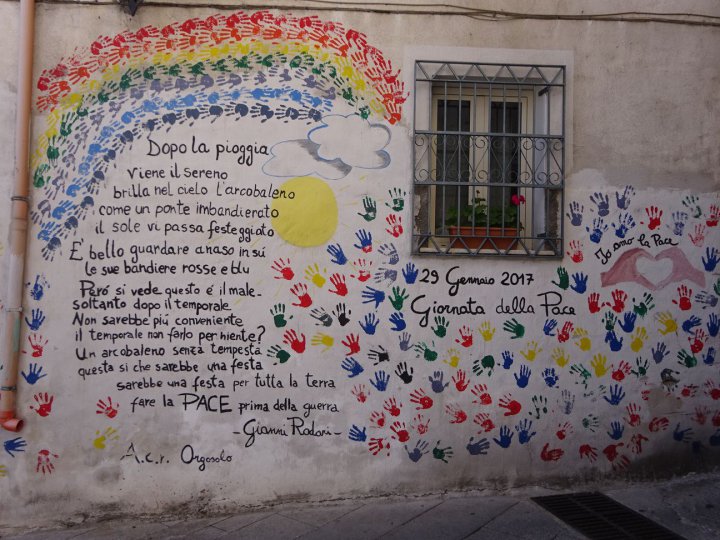 Dopo la pioggia
viene il sereno
brilla nel cielo l'arcobaleno
come un ponte imbandierato
il sole vi passa festeggiato
E' bello guardare a naso in su
le sue bandiere rosse e blu
Peró si vede questo é il male
soltanto dopo il temporale
Non sarebbe piú conveniente
il temporale non farlo per niente?
Un arcobaleno senza tempesta
questa si che sarebbe una festa
sarebbe una festa per tutta la terra
fare la PACE prima della guerra
- Gianni Rodari -
A.c.r. Orgosolo
29 Gennaio 2017
Giornata della Pace
Io amo la Pace